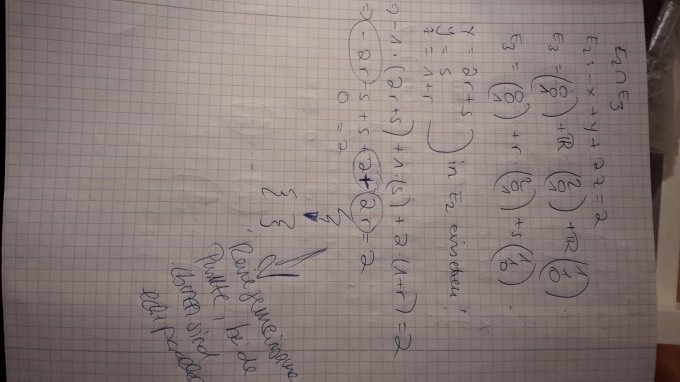 E₂ ∩ E₃
E₂: -x + y + 2z = 2
E₃ = (0 0 1) + ℝ (2 0 1) + ℝ (1 1 0)
E₃ = (0 0 1) + r · (2 0 1) + s (1 1 0)
x = 2r + s
y = s
z = 1 + r
in E₂ einsetzen!
⇒ -1 · (2r+s) + 1 · (s) + 2 · (1+r) = 2
⇒ -2r - s + s + 2 + 2r = 2
0 = 2
{ }
Keine gemeinsame
Punkte, beide
Ebenen sind
echt parallel